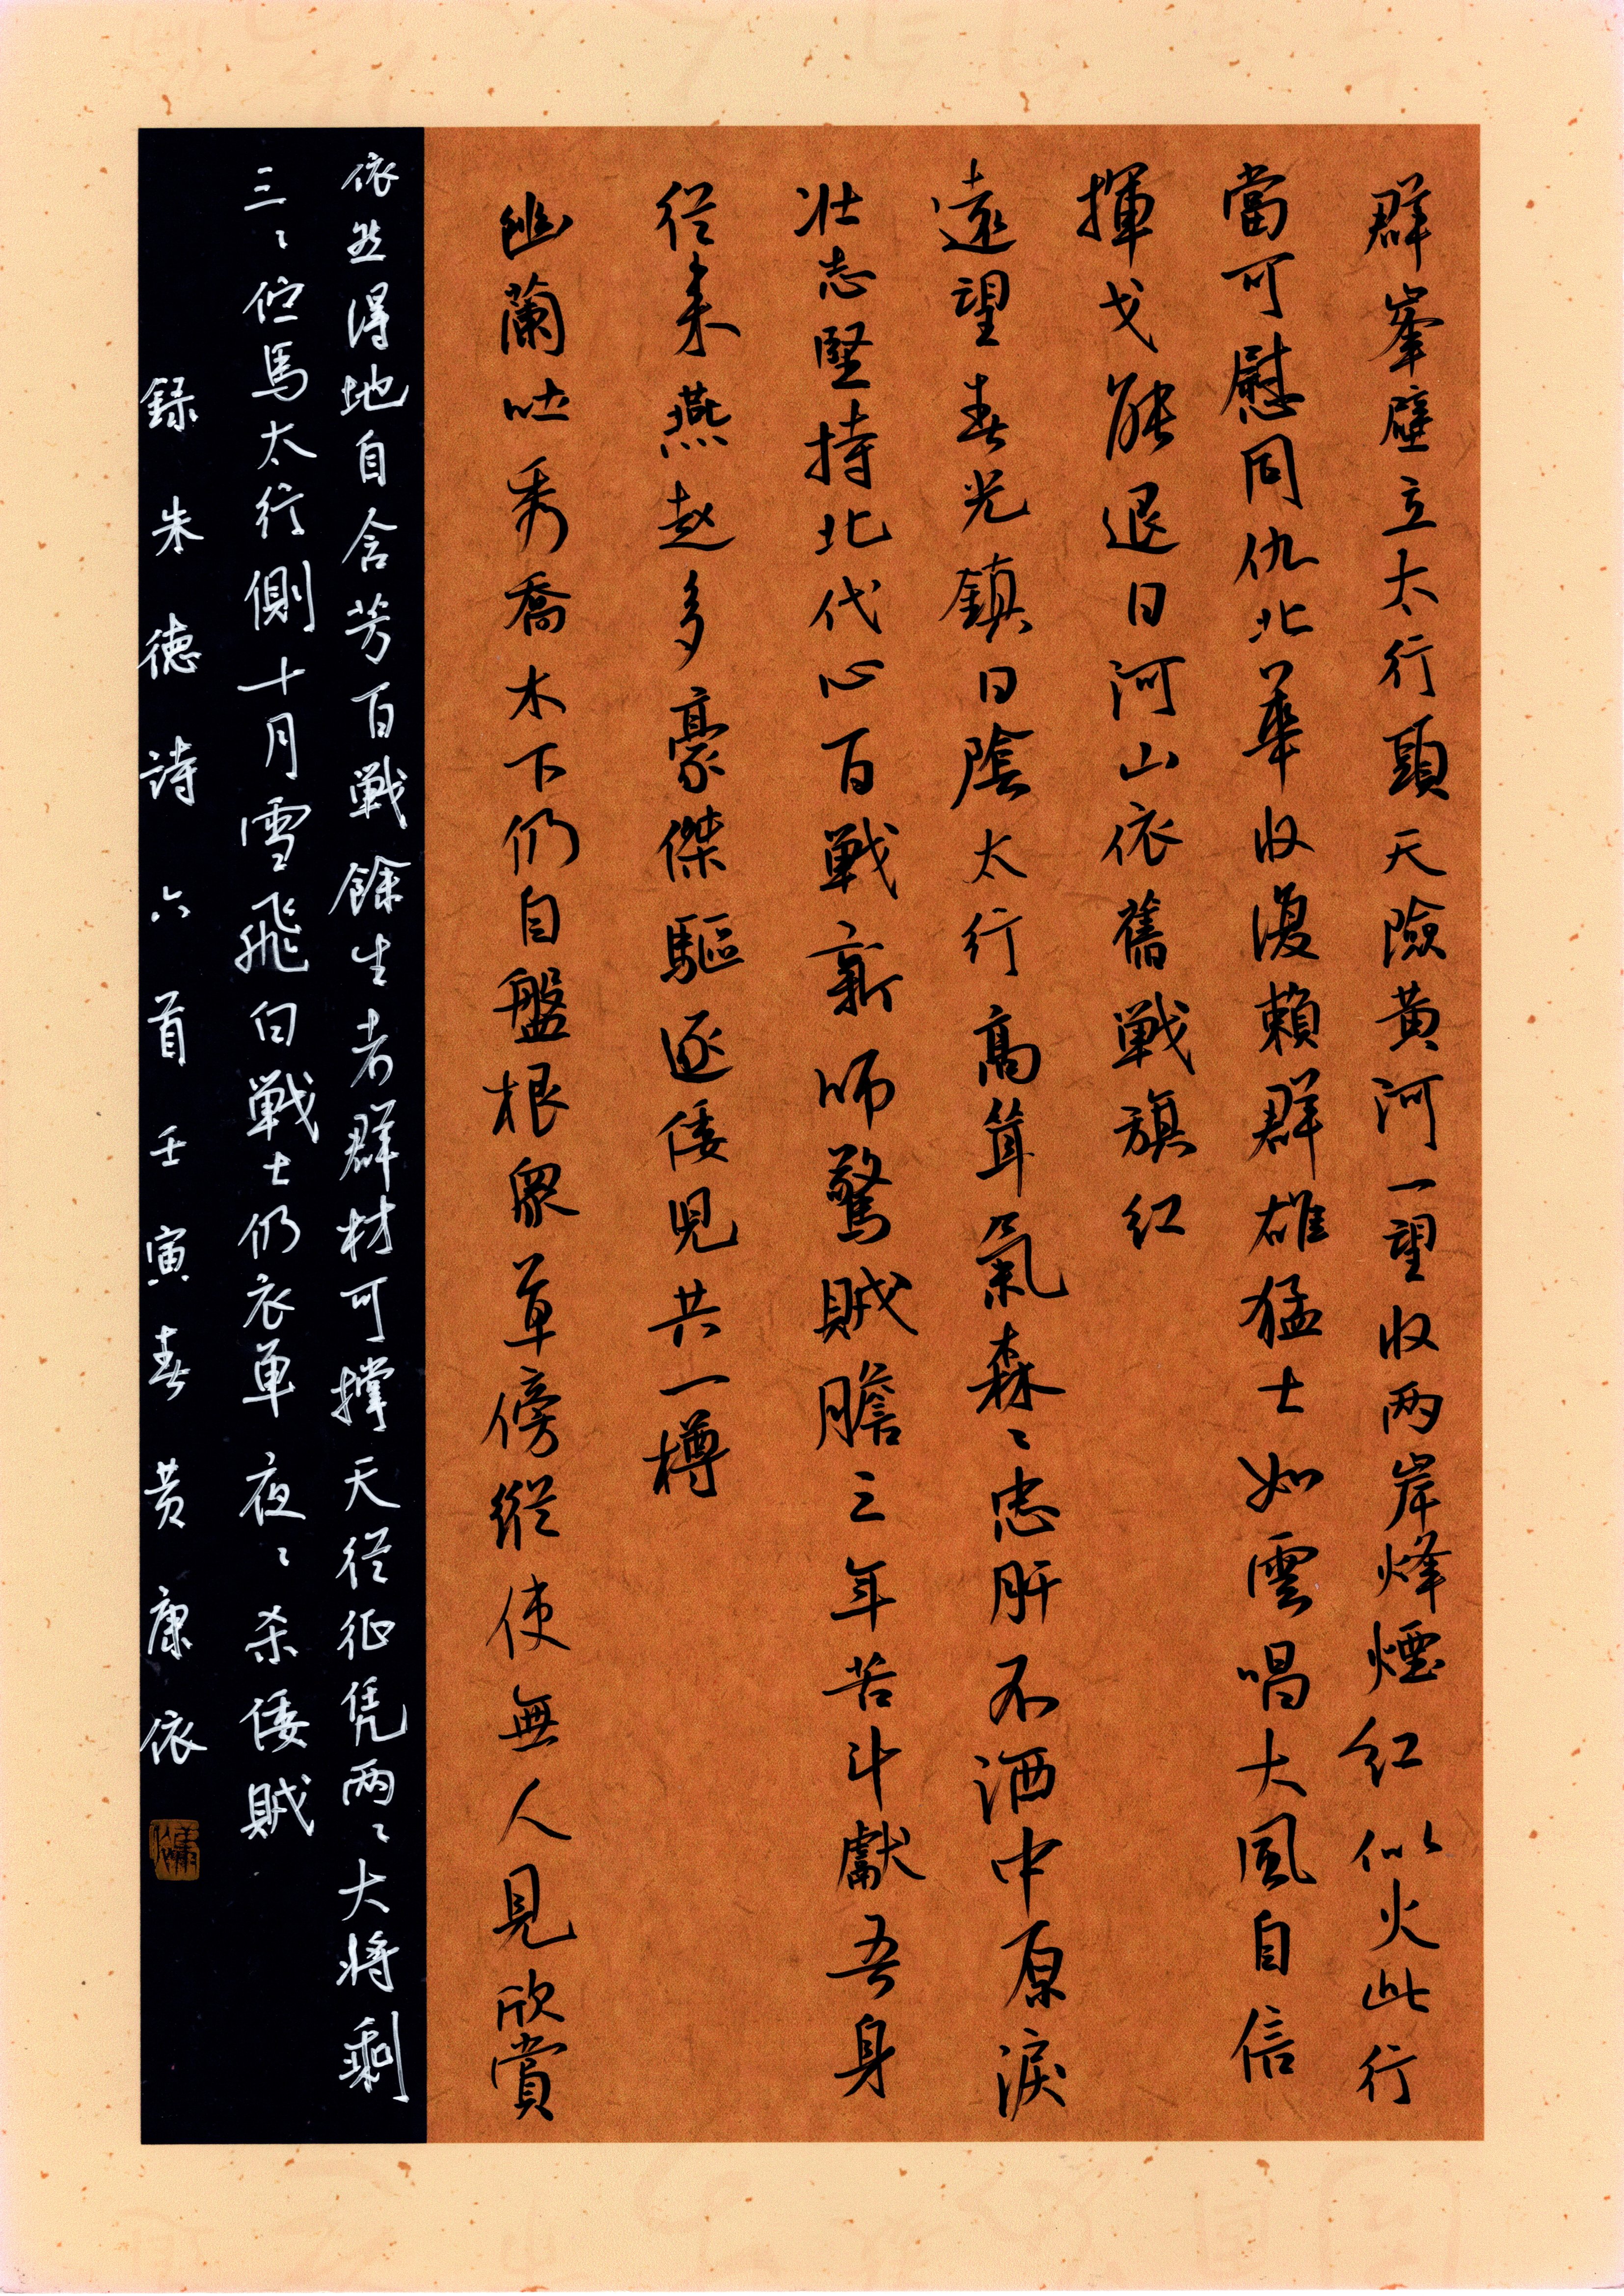 群峯壁立太行頭天險黃河一望收两岸烽煙紅似火此行
當可慰同仇北華收復賴群雄猛士如雲唱大風自信
揮戈能退日河山依舊戰旗紅
遠望春光鎮日陰太行高聳氣森〻忠肝不洒中原淚
壯志堅持北伐心百戰新師驚賊膽三年苦斗獻吾身
從來燕趙多豪傑驅逐倭児共一樽
幽蘭吐秀喬木下仍自盤根眾草傍縱使無人見欣賞
依然得地自含芳百戰餘生者群材可撐天從征凭两〻大將剩
三〻伫馬太行側十月雪飛白戰士仍衣单夜〻杀倭賊
録朱德詩六首壬寅春黄康依